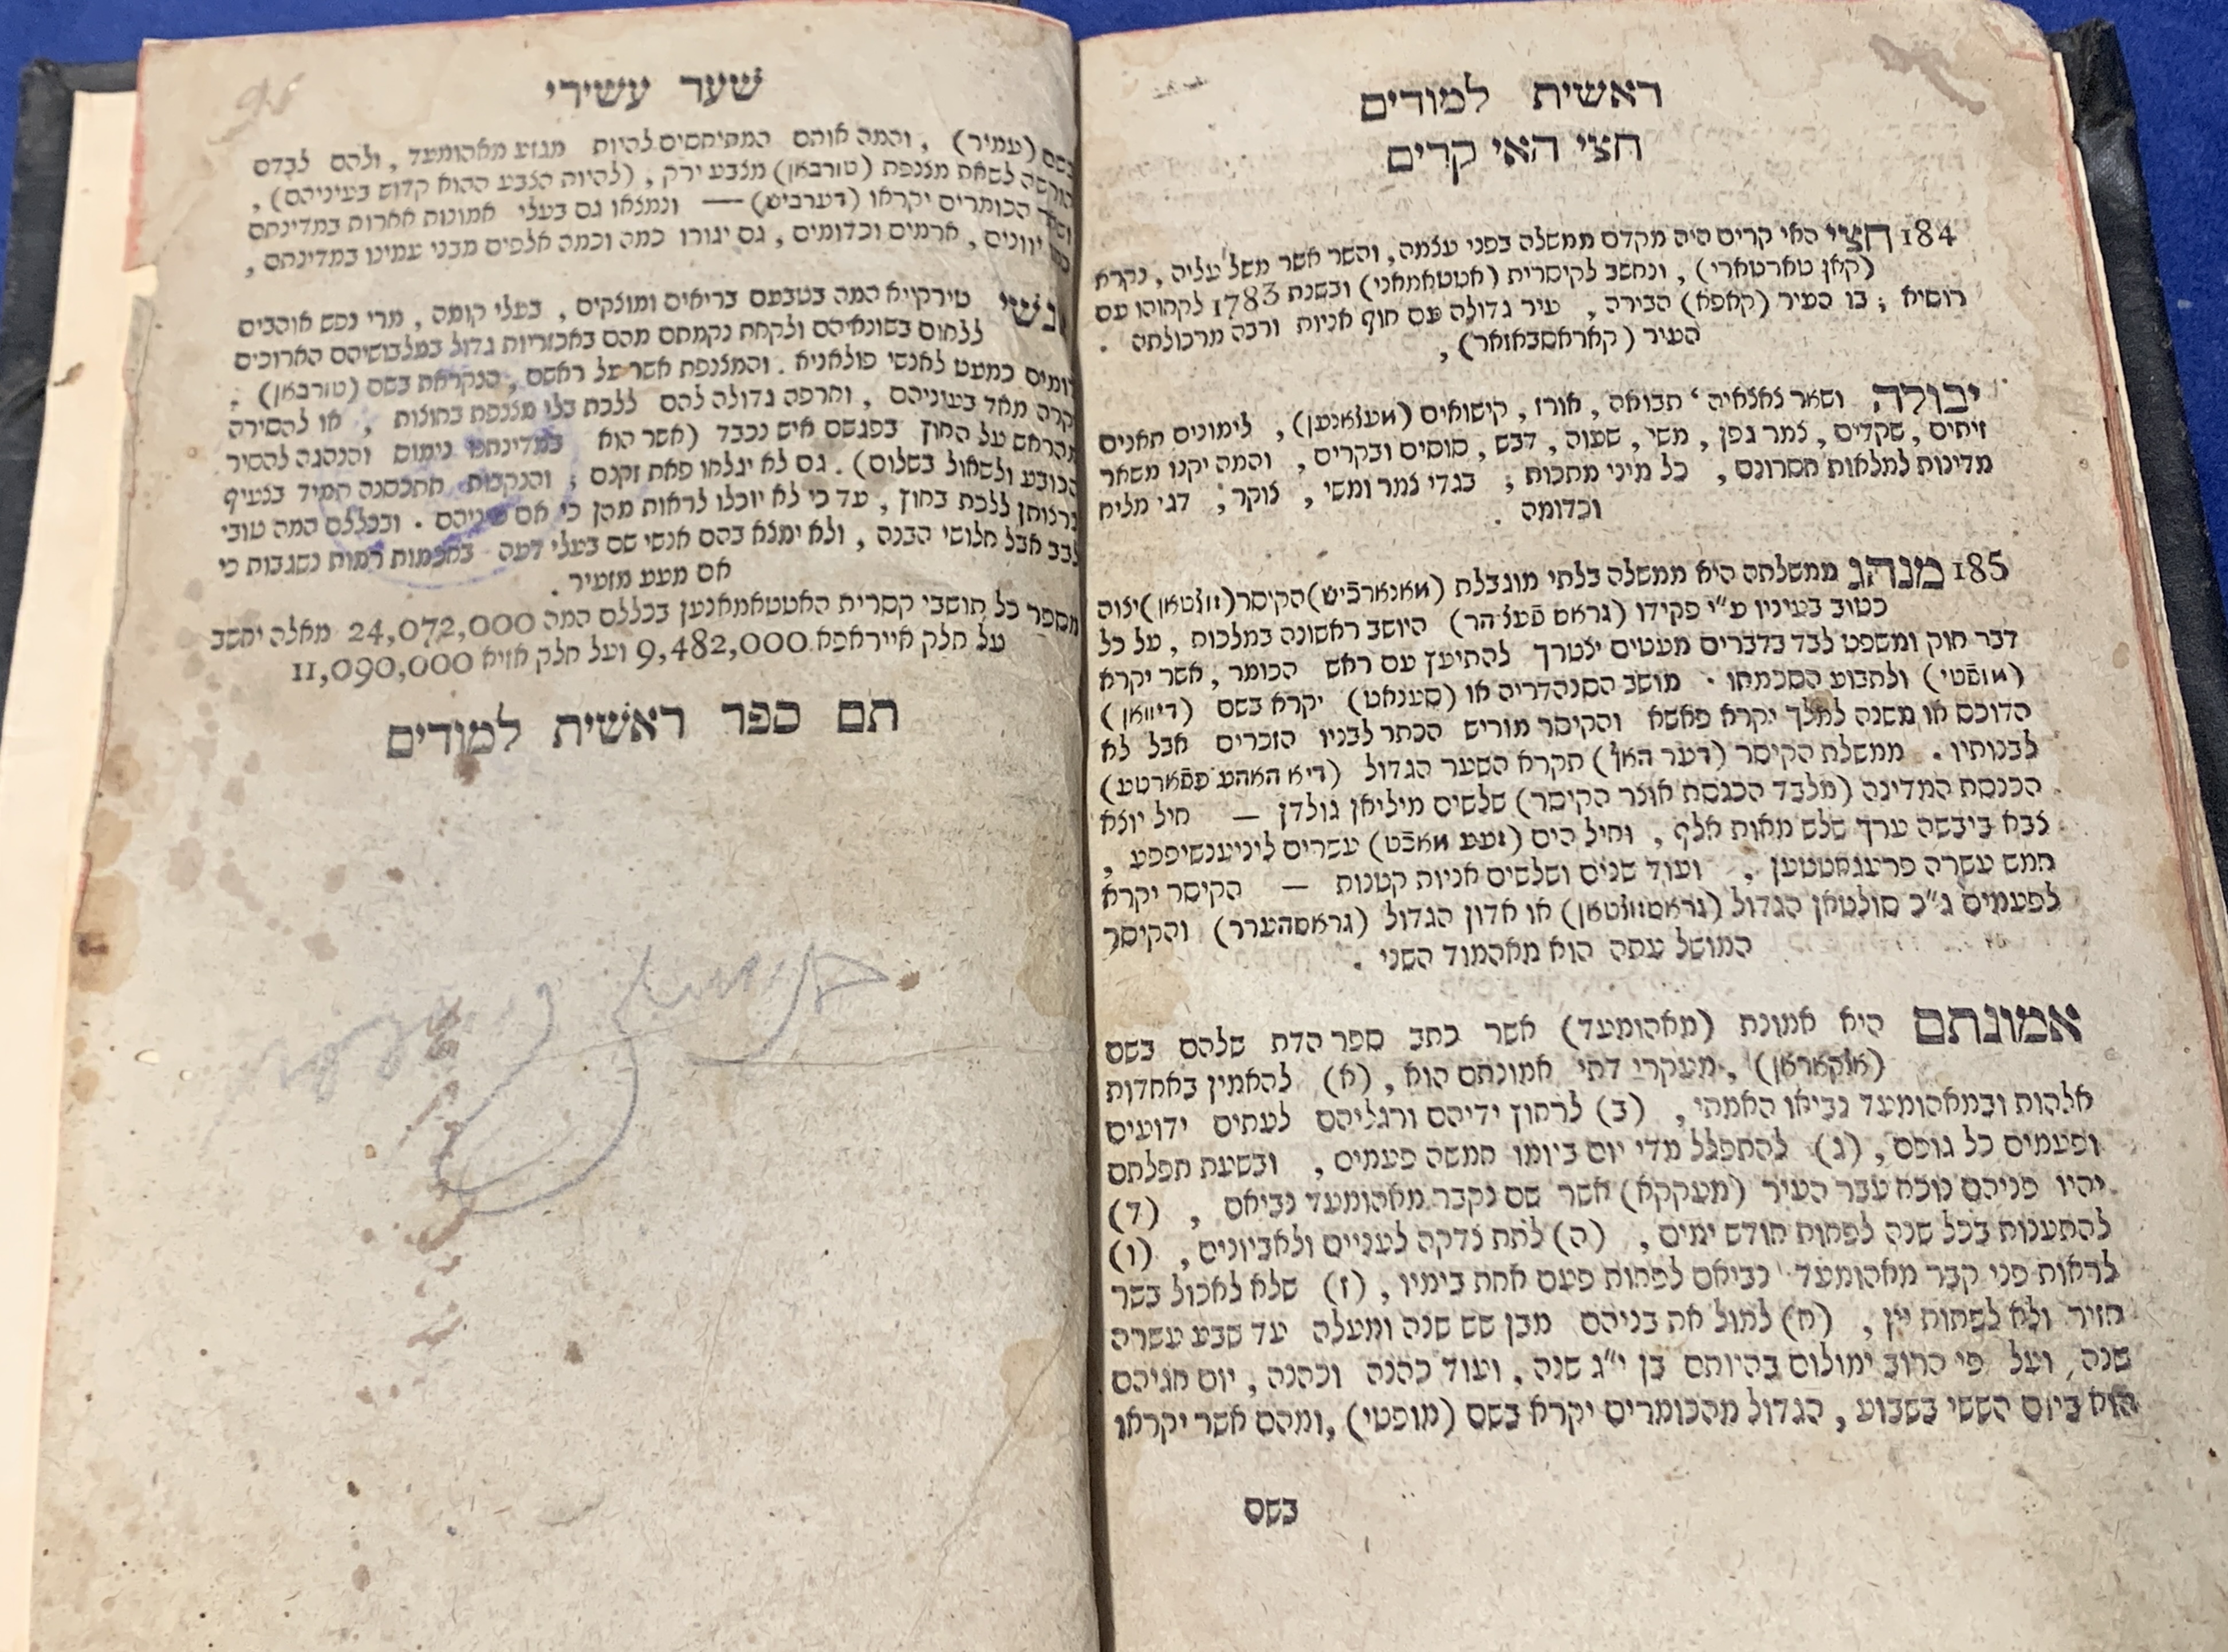 ראשית למודים
חצי האי קרים
184 חצי האי קרים היה מקדם ממשלה בפני עצמה, והשר אשר משל עליה, נקרא
(קאן טארטארי), ונחשב לקיסרית (אטטאמאני) ובשנת 1783 לקחוהו עם
רוסיא; בו העיר (קאפא) הבירה, עיר גדולה עם חוף אניות ורבה מרכולתה.
העיר (קאראסבאזאר),
יבולה ושאר צאצאיה, תבואה, אורז, קישואים (מעלאנען), לימונים תאנים
זיתים, שקדים, צמר גפן, משי, שעוה, דבש, סוסים ובקרים, והמה יקנו משאר
מדינות למלאות חסרונם, כל מיני מתכות; בגדי צמר ומשי, צוקר, דגי מליח
וכדומה.
185 מנהג ממשלתה היא ממשלה בלתי מוגבלת (מאנארכיש) הקיסר (זולטאן) יצוה
כטוב בעיניו ע"י פקידו (גראס פעליהר) היושב ראשונה במלכות, על כל
דבר חוק ומשפט לבד בדברים מעטים יצטרך להתיעץ עם ראש הכומר, אשר יקרא
(מופטי) ולתבוע הסכמתו. מושב הסנהדריה או (סענאט) יקרא בשם (דיוואן)
הדוכס או משנה למלך יקרא פאשא והקיסר מוריש הכתר לבניו הזכרים אבל לא
לבנותיו. ממשלת הקיסר (דער האף) תקרא השער הגדול (דיא האהע פפארטע)
הכנסת המדינה (מלבד הכנסת אוצר הקיסר) שלשים מיליאן גולדן — חיל יוצא
צבא ביבשה ערך שלש מאות אלף, וחיל הים (זעע מאכט) עשרים ליניענשיפפע,
חמש עשרה פרעגאטטען, ועוד שנים ושלשים אניות קטנות — הקיסר יקרא
לפעמים ג"כ סולטאן הגדול (גראסזולטאן) או אדון הגדול (גראסהערר) והקיסר
המושל עתה הוא מאהמוד השני.
אמונתם היא אמונת (מאהומעד) אשר כתב ספר הדת שלהם בשם
(אלקאראן), מעקרי דתי אמונתם הוא, (א) להאמין באחדות
אלהות ובמאהומעד נביאו האמתי, (ב) לרחוץ ידיהם ורגליהם לעתים ידועים
ופעמים כל גופם, (ג) להתפלל מדי יום ביומו חמשה פעמים, ובשעת תפלתם
יהיו פניהם נוכח עבר העיר (מעקקא) אשר שם נקבר מאהומעד נביאם, (ד)
להתענות בכל שנה לפחות חודש ימים, (ה) לתת צדקה לעניים ולאביונים, (ו)
לראות פני קבר מאהומעד נביאם לפחות פעם אחת בימיו, (ז) שלא לאכול בשר
חזיר ולא לשתות יין, (ח) למול את בניהם מבן שש שנה ומעלה עד שבע עשרה
שנה, ועל פי הרוב ימולום בהיותם בן י"ג שנה, ועוד כהנה וכהנה, יום חגיהם
הוא ביום הששי בשבוע, הגדול מהכומרים יקרא בשם (מופטי), ומהם אשר יקראו
בשם
שער עשירי
בשם (עמיר), והמה אותם המתיחסים להיות מגזע מאהומעד, ולהם לבדם
הורשה לשאת מצנפת (טורבאן) מצבע ירק, (להיות הצבע ההוא קדוש בעיניהם),
ושאר הכומרים יקראו (דערביש) — ונמצאו גם בעלי אמונות אחרות במדינתם
כמו יוונים, ארמים וכדומים, גם יגורו כמה וכמה אלפים מבני עמינו במדינתם,
אנשי טירקייא המה בטבעם בריאים ומוצקים, בעלי קומה, מרי נפש אוהבים
ללחום בשונאיהם ולקחת נקמתם מהם באכזריות גדול במלבושיהם הארוכים
דומים כמעט לאנשי פולאניא. והמצנפת אשר על ראשם, הנקראת בשם (טורבאן),
יקרה מאד בעוניהם, וחרפה גדולה להם ללכת בלי מצנפת בחוצות, או להסירה
מהראש על החוץ בפגשם איש נכבד (אשר הוא במדינתם נימוס והנהגה להסיר
הכובע ולשאול בשלום). גם לא יגלחו פאת זקנם, והנקבות תתכסנה תמיד בצעיף
ברצותן ללכת בחוץ, עד כי לא יוכלו לראות מהן כי אם עיניהם. ובכללם המה טובי
לבב אבל חלושי הבנה, ולא ימצא בהם אנשי שם בעלי דעה בחכמות רמות נשגבות כי
אם מעט מזעיר.
מספר כל תושבי קסרית האטטאמאנען בכללם המה 24,072,000 מאלה יחשב
על חלק אייראפא 9,482,000 ועל חלק אזיא 11,090,000
תם ספר ראשית למודים